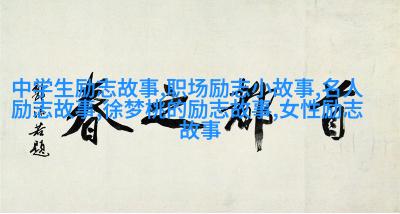 中学生励志故事,职场励志小故事,名人
励志故事,徐梦桃的励志故事,女性励志
故事
首都之春
郭沫若题